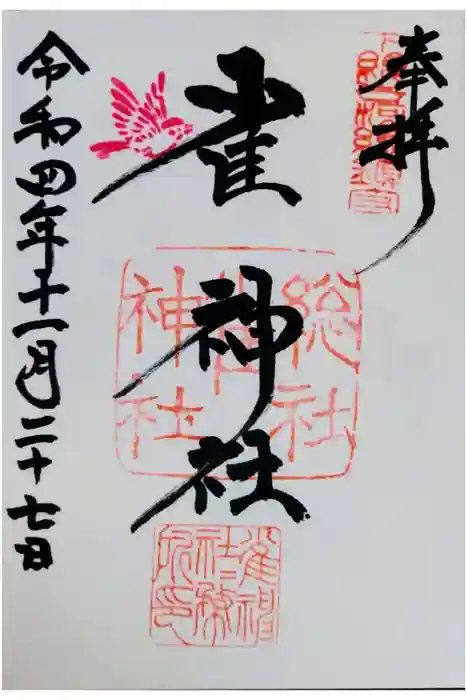 奉拝
雀神社
総社
雀
神社
雀神
社〻務
所印
令和四年十一月二十七日